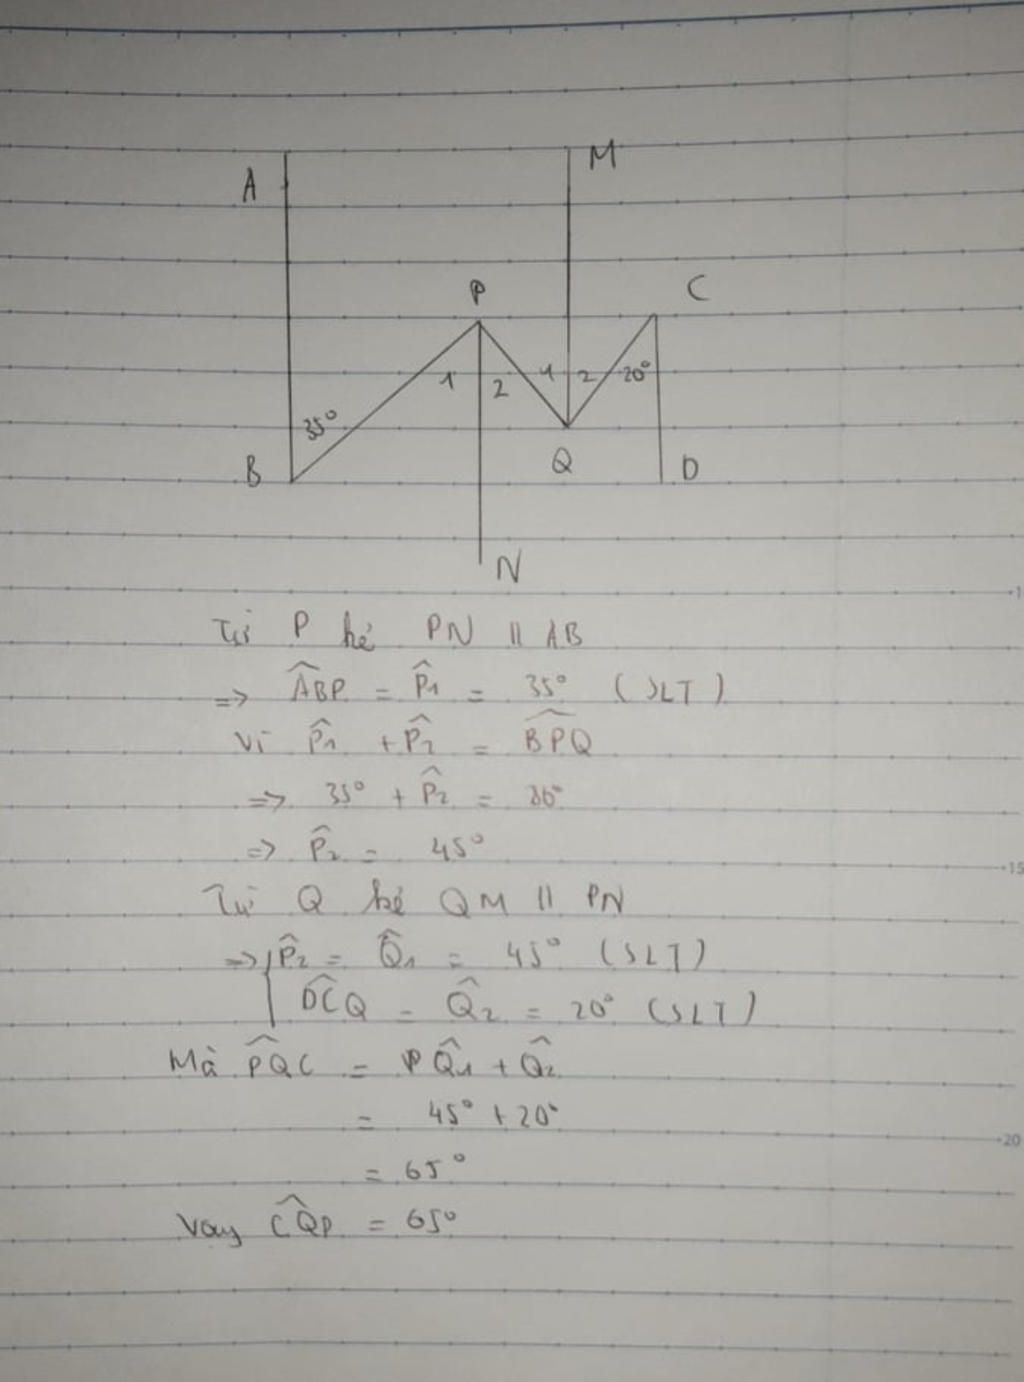 A
M
P
C
1
2
1
2
20°
35°
B
Q
D
N
Từ P kẻ PN // AB
=> ABP = P1 = 35° (SLT)
Vì P1 + P2 = BPQ
=> 35° + P2 = 80°
=> P2 = 45°
Từ Q kẻ QM // PN
=> P2 = Q1 = 45° (SLT)
DCQ = Q2 = 20° (SLT)
Mà PQC = Q1 + Q2
= 45° + 20°
= 65°
Vậy CQP = 65°
15
20